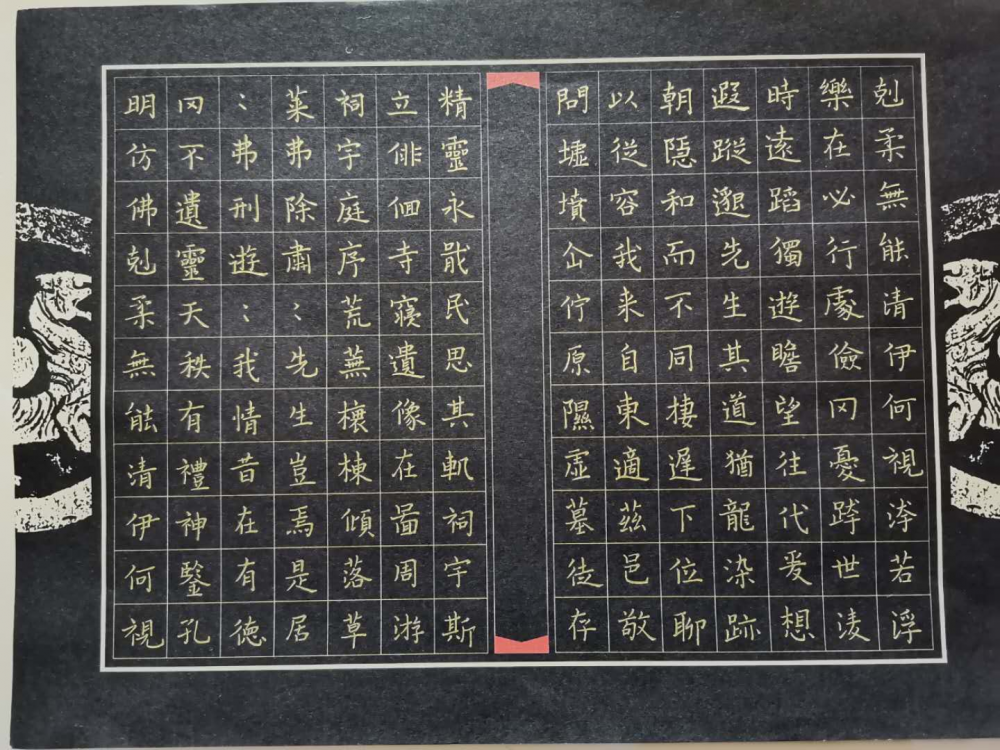 尅柔無能清伊何視洿若浮
樂在必行處儉冈憂跨世淩
時遠蹈獨遊瞻望往代爰想
遐蹤邈先生其道猶龍染跡
朝隠和而不同棲遲下位聊
以從容我来自東適茲邑敬
問墟墳企佇原隰虚墓徒存
精靈永戢民思其軌祠宇斯
立俳佪寺寢遺像在啚周游
祠宇庭序荒蕪榱棟傾落草
萊弗除肅〻先生豈焉是居
〻弗刑遊〻我情昔在有德
冈不遺靈天秩有禮神鑒孔
明仿佛尅柔無能清伊何視